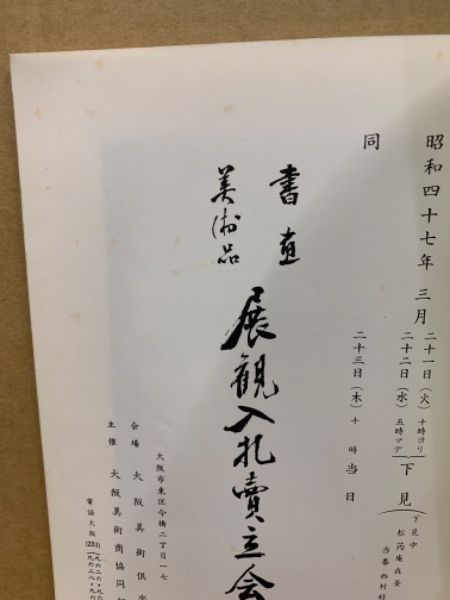 昭和四十七年 三月
二十一日（火）十時ヨリ
二十二日（水）五時マデ
下見
下見中
松筠庵在釜
当番 西村
同
二十三日（木）十時 当日
書画
美術品
展観入札賣立会
大阪市東区今橋二丁目一七
会場 大阪美術倶
主催 大阪美術商協同
電話大阪(231)